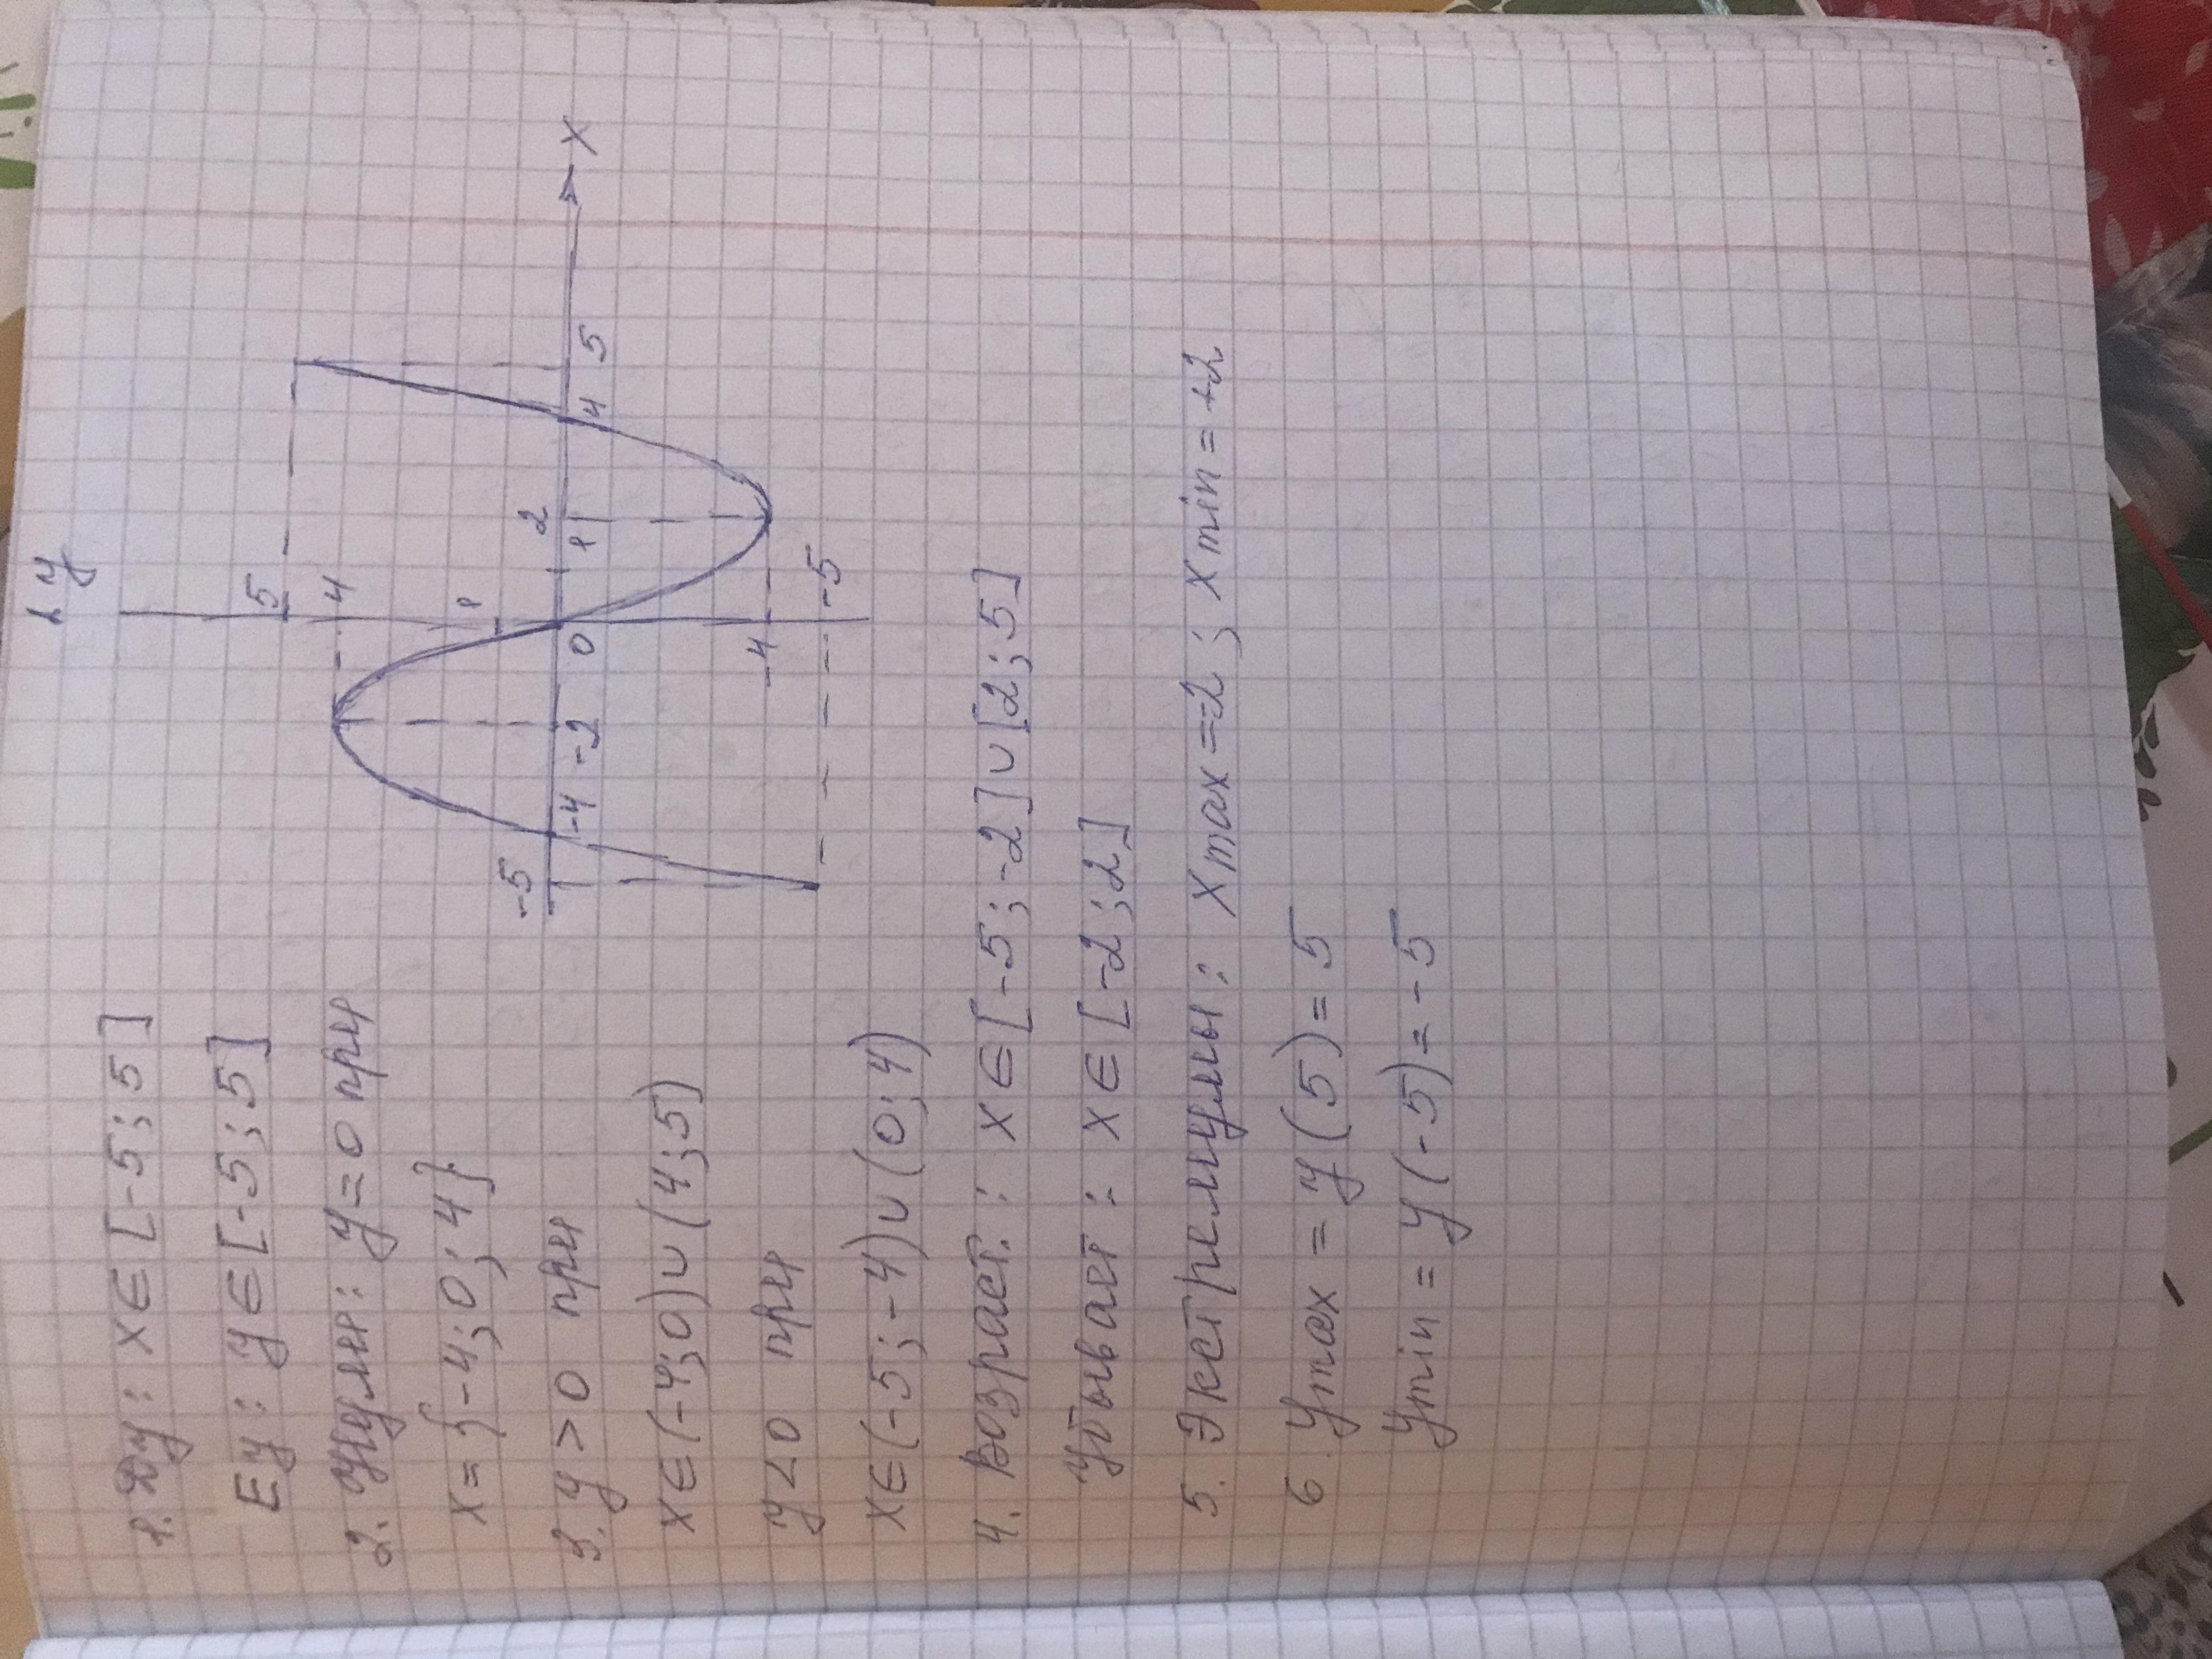 1. Dy: x∈[-5;5]
Ey: y∈[-5;5]
2. Нули: y=0 при
x={-4;0;4}
3. y>0 при
x∈(-4;0)∪(4;5)
y<0 при
x∈(-5;-4)∪(0;4)
4. Возраст.: x∈[-5;-2]∪[2;5]
Убывает: x∈[-2;2]
5. Экстремумы: xmax=-2; xmin=+2
6. ymax = y(5)=5
ymin = y(-5)=-5
y
5
4
1
-5
-4
-2
0
1
2
4
5
x
-4
-5